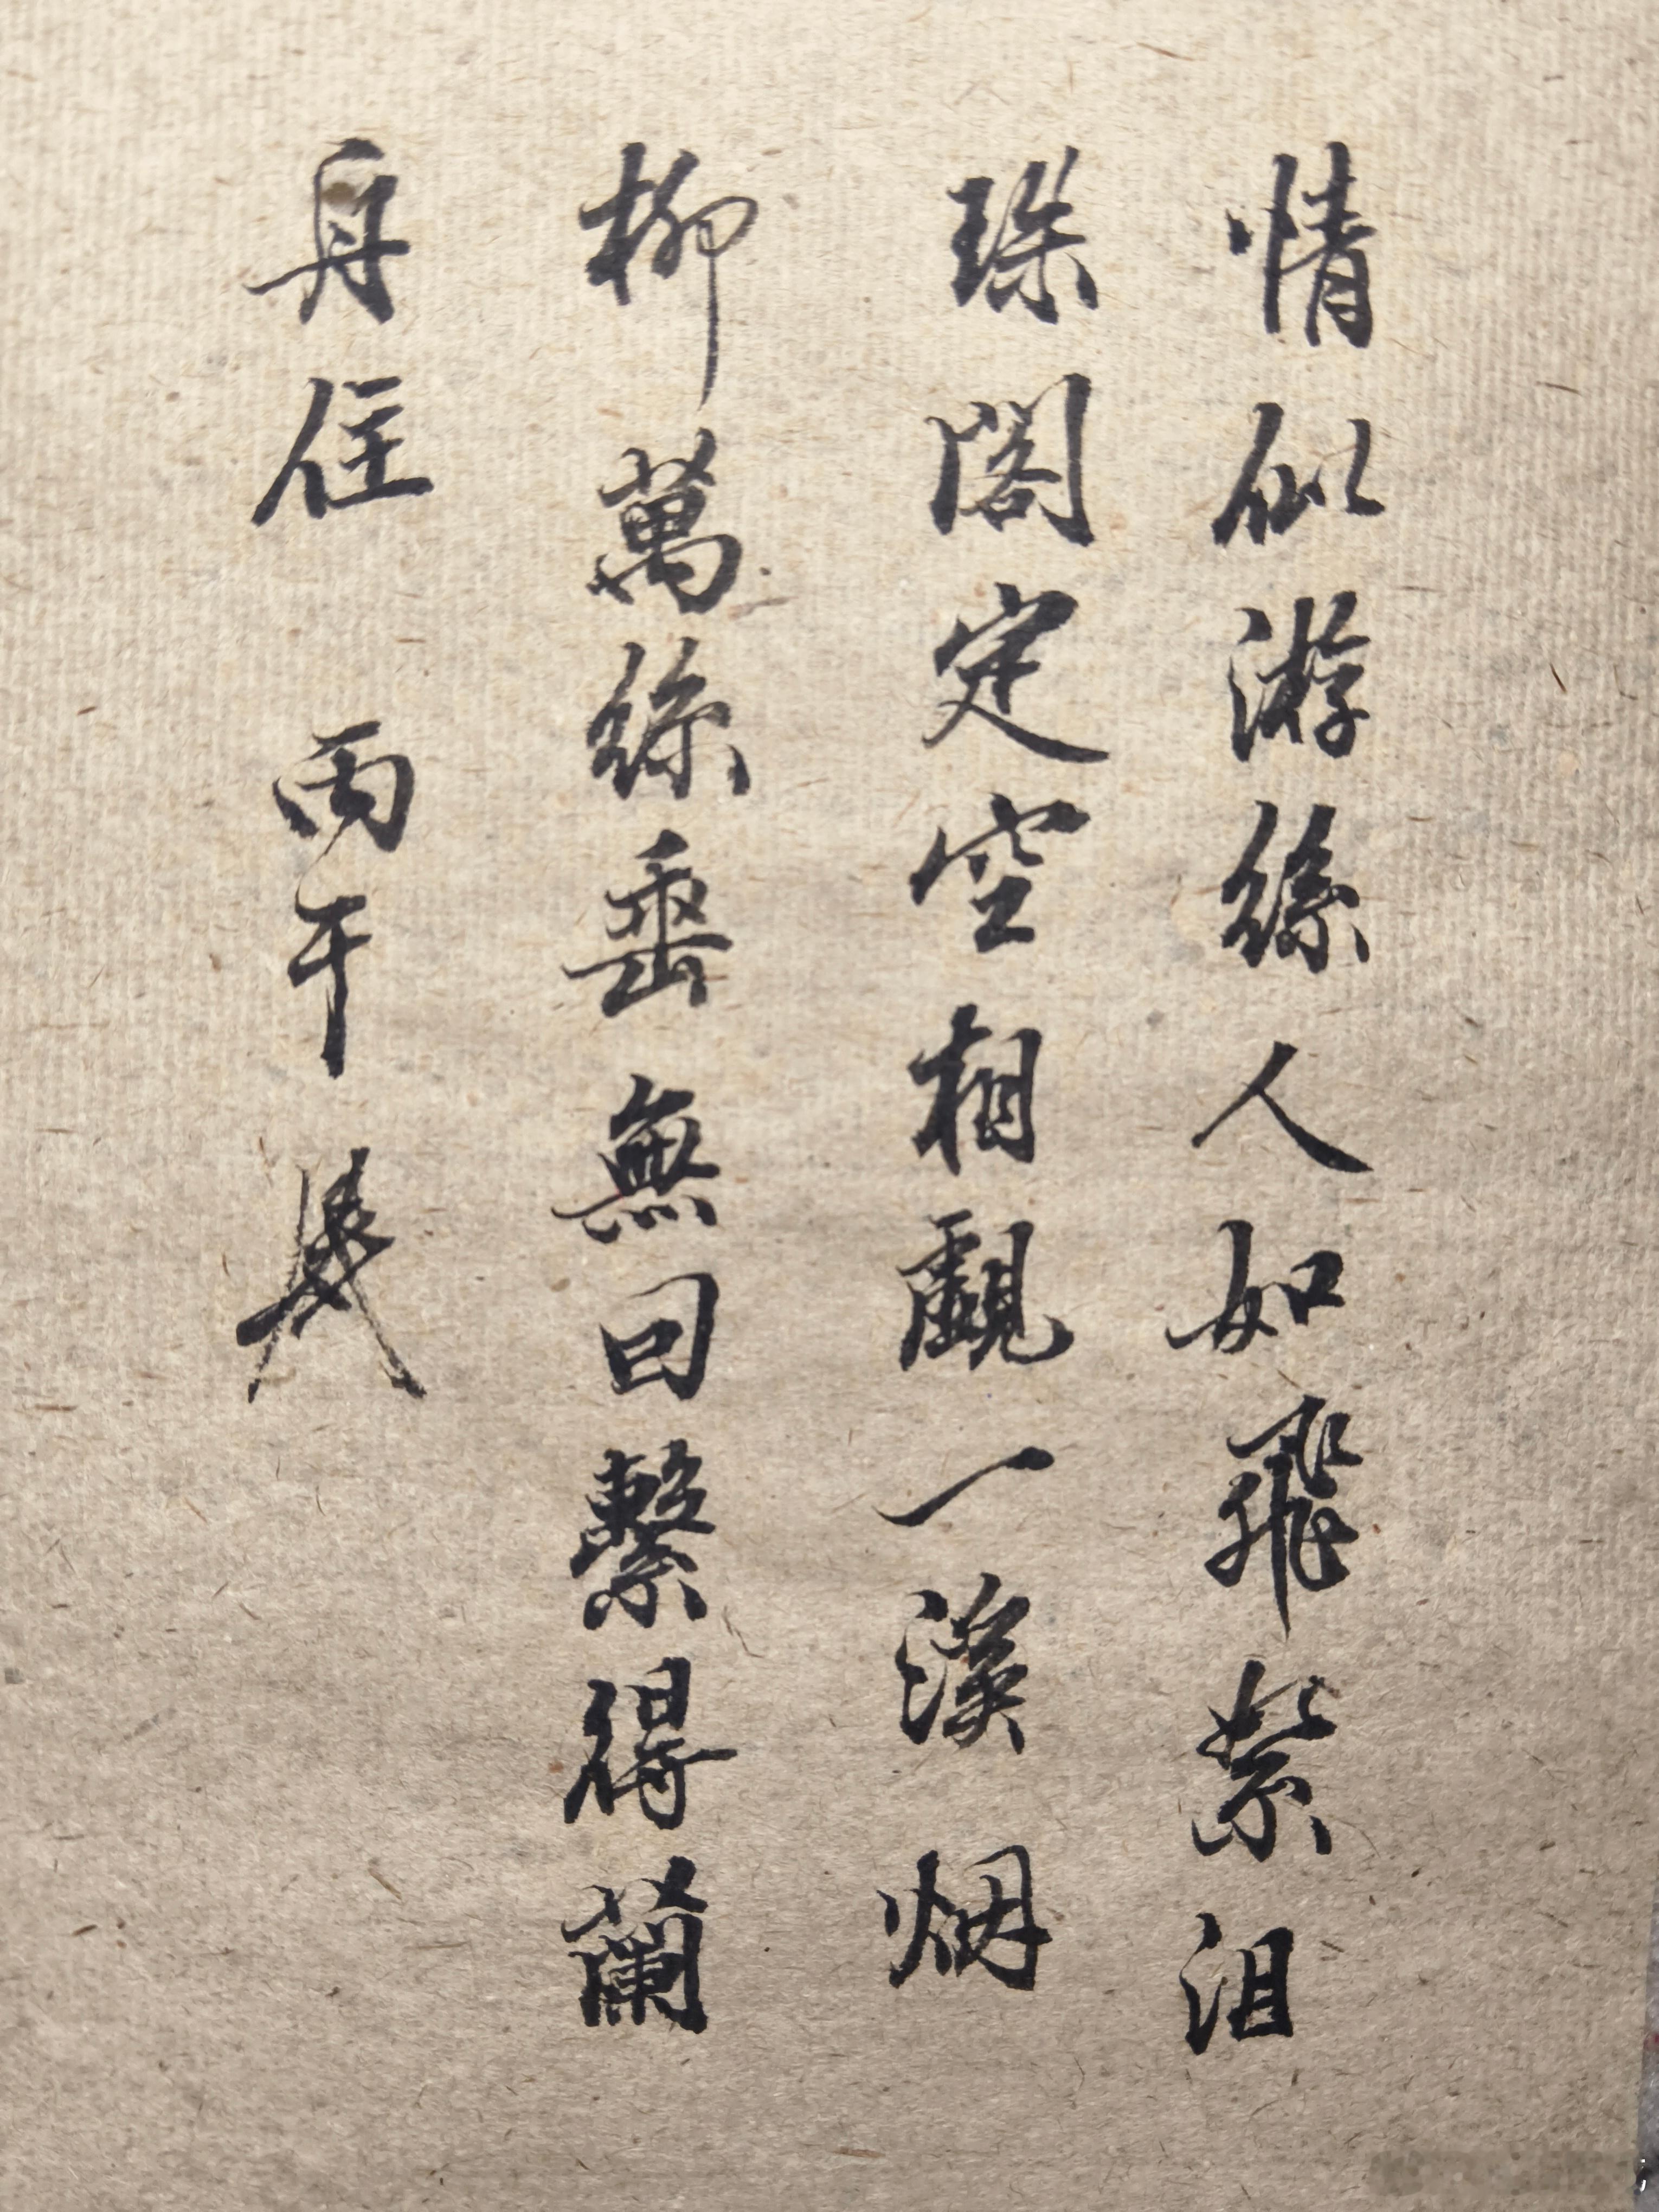 情似游絲人如飛絮淚
珠閣定空相覷一溪烟
柳萬絲垂無因繫得蘭
舟住 丙午